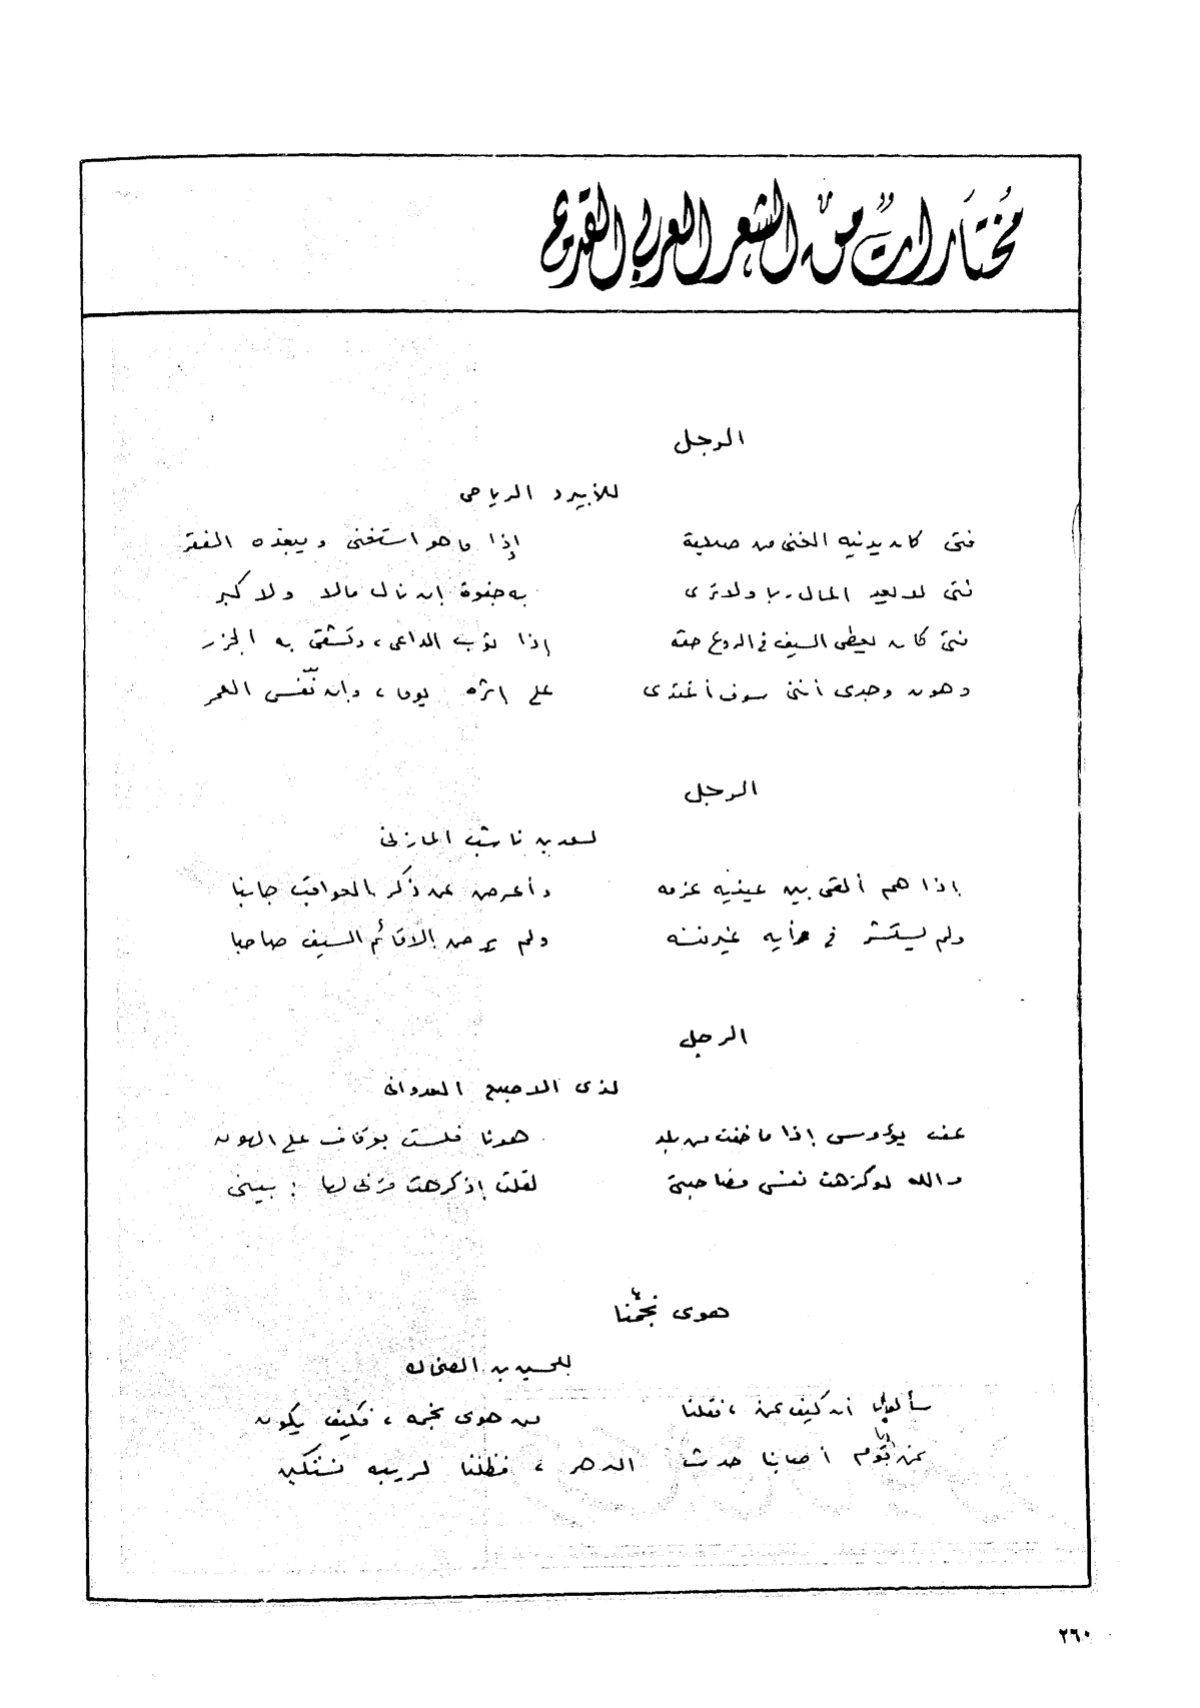 مُختَاراتٌ من الشعر العربي القديم
الرجل
للأبيرد الرياحى
فتى كان يدنيه الغنى من صديقه إذا ما هو استغنى ويبعده الفقر
فتى لا يعد المال ربا ولا ترى به جفوة إن نال مالا ولا كبر
فتى كان يعطى السيف فى الروع حقه إذا ثوب الداعى، وتشقى به الجزر
وهون وجدى أننى سوف أغتدى على اثره يوما، وإن نفّس العمر
الرجل
لسعد بن ناشب المازنى
إذا هم ألقى بين عينيه عزمه وأعرض عن ذكر العواقب جانبا
ولم يستشر فى رأيه غير نفسه ولم يرض إلا قائم السيف صاحبا
الرجل
لذى الاصبع العدوانى
عف يؤوس إذا ما خفت من بلد هونا فلست بوقاف على الهون
والله لو كرهت نفسى مصاحبتى لقلت إذ كرهت قربى لها : بينى
هوى نجمُنا
للحسين بن الضحاك
سألونا أن كيف نحن، فقلنا من هوى نجمه، فكيف يكون
نحن قوم أصابنا حدث الدهر، فظلنا لريبه نستكين
٢٦٠